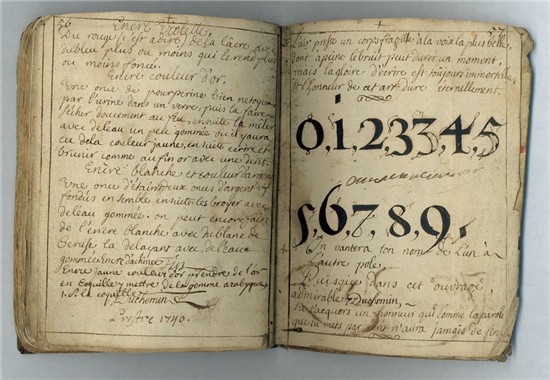 56
Encre Violette,
Du rouge c'est a dire, de la lacre, avec
du bleu plus ou moins qui le rend plus
ou moins foncé.
Encre couleur d'or.
Une once de pourperine bien netoyée
par l'urine dans un verre, puis la faire
sécher doucement au feu, ensuite la mêler
avec de leau un peu gommée ou il y aura
eu de la couleur jaune, en suite ecrire et
brunir comme au fin or avec une dent.
Encre blanche et couleur d'argent
Une once d'étain, deux onces d'argent vif
fondües en semble en suitte les broyer avec
de leau gommée. on peut encore faire
de l'encre blanche avec du blanc de
Ceruse la delayant avec de l'eau
gommée. Encre d'achimie
Encre jaune couleur d'or prendre de l'or
en Coquille y mettre de la gomme arabyque
en coquille
Duchemin
Prestre 1740.
L'air preste un corps fragille à la voix la plus belle,
dont a peine le bruit peut durer un moment,
mais la gloire d'ecrire est toûjours immortelle,
et l'honneur de cet art dure éternellement.
0,1,2,3,3,4,5
5,6,7,8,9.
On vantera ton nom de l'un à
l'autre pole,
Puisque dans cet ouvrage,
admirable, Duchemin,
tu t'acquers un honneur qui comme la parole
que tu mets par ecrit n'aura jamais de fin.